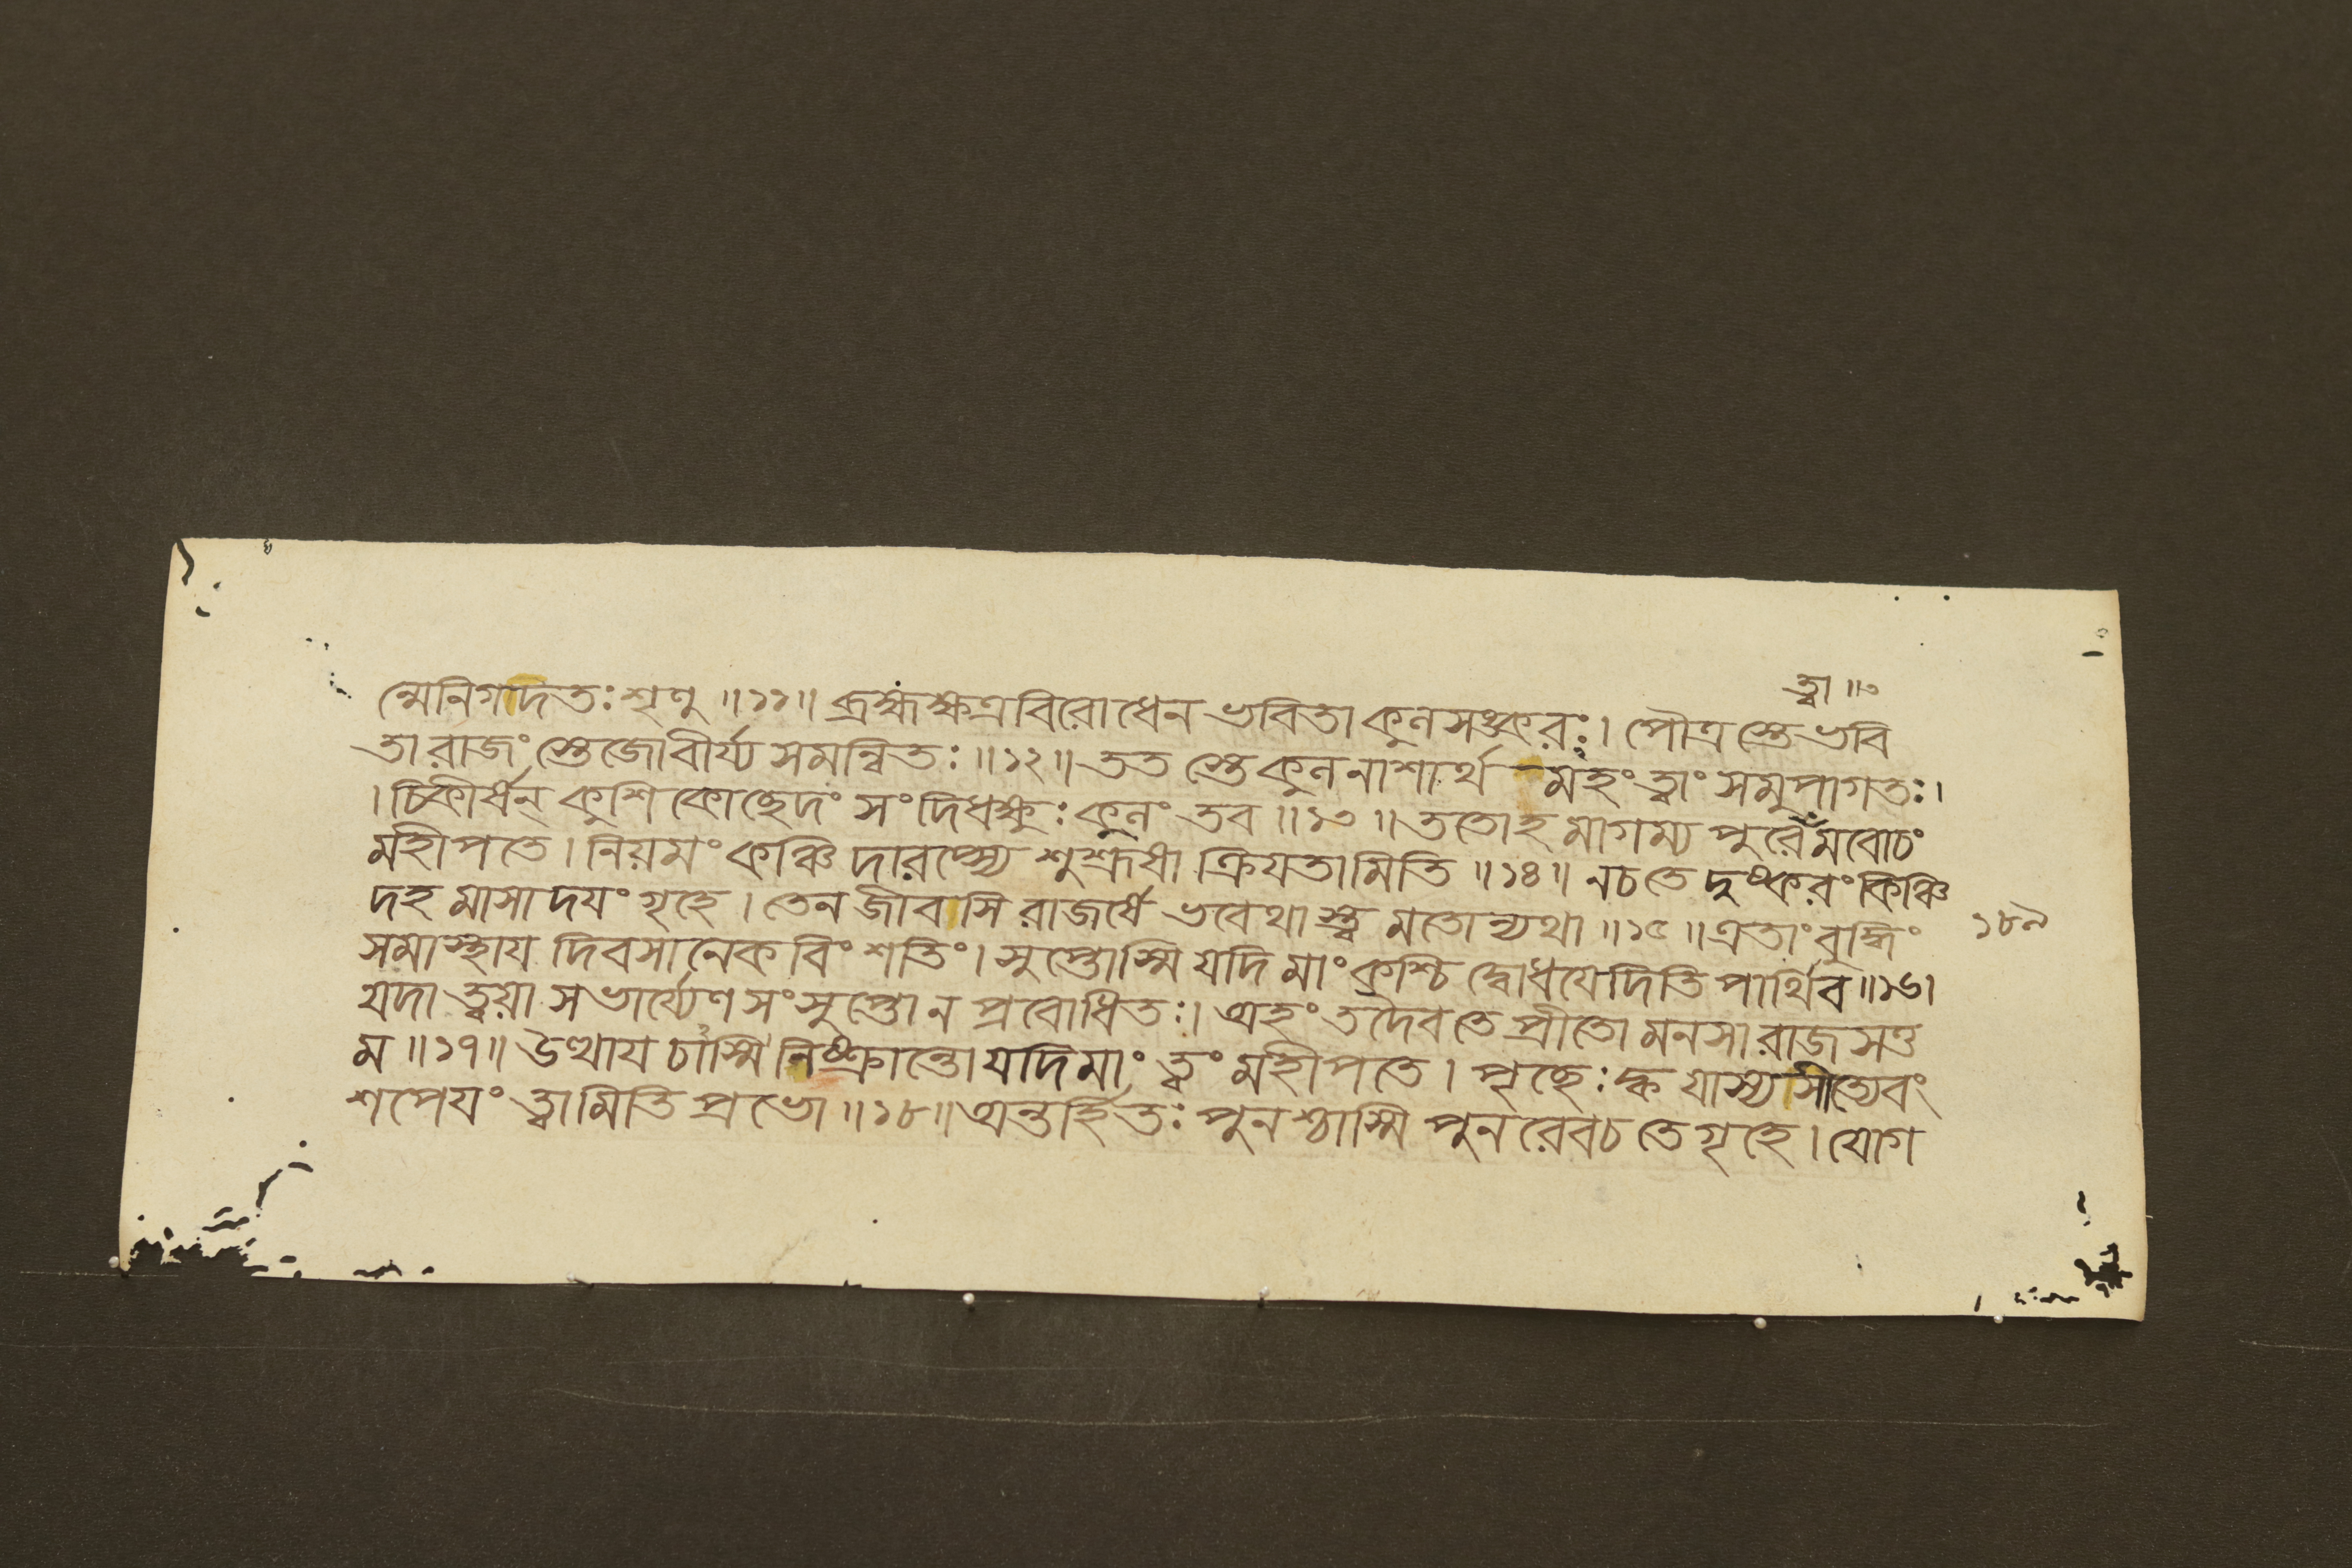 ত্বা ॥৩
ন্মেনিগদতঃ শৃণু ॥১১॥ ব্রহ্মক্ষত্রবিরোধেন ভবিতা কুলসঙ্করঃ। পৌত্রস্তেভবি
তা রাজং স্তেজোবীর্য্য সমন্বিতঃ ॥১২॥ তত স্তেকুলনাশার্থ মহং ত্বাং সমুপাগতঃ।
। চিকীর্ষন্ কুশিকোছেদং সংদিধক্ষুঃ কুলং তব ॥১৩॥ ততোহ মাগম্য পুরেমবোচং
মহীপতে। নিয়মং কঞ্চি দারপ্স্যে শুশ্রূষা ক্রিযতামিতি ॥১৪॥ নচতে দুষ্করং কিঞ্চি
দহ মাসা দযং গৃহে। তেন জীবসি রাজর্ষে ভবেথাস্ত্ব মতোন্যথা ॥১৫॥ এতাং বুদ্ধিং
১৮৯
সমাস্থায দিবসানেক বিংশতিং। সুপ্তোস্মি যদি মাং কশ্চি দ্বোধযেদিতি পার্থিব ॥১৬।
যদা ত্বয়া সভার্য্যেণ সংসুপ্তো ন প্রবোধিতঃ। অহং তদৈবতে প্রীতো মনসা রাজসত্ত
ম ॥১৭॥ উত্থায চাস্মি নিষ্ক্রান্তো যদি মাং ত্বং মহীপতে। পৃছেঃ ক্ক যাস্যসীত্যেবং
শপেযং ত্বামিতি প্রভো ॥১৮॥ অন্তর্হিতঃ পুনশ্চাস্মি পুনরেবচ তেগৃহে। যোগ